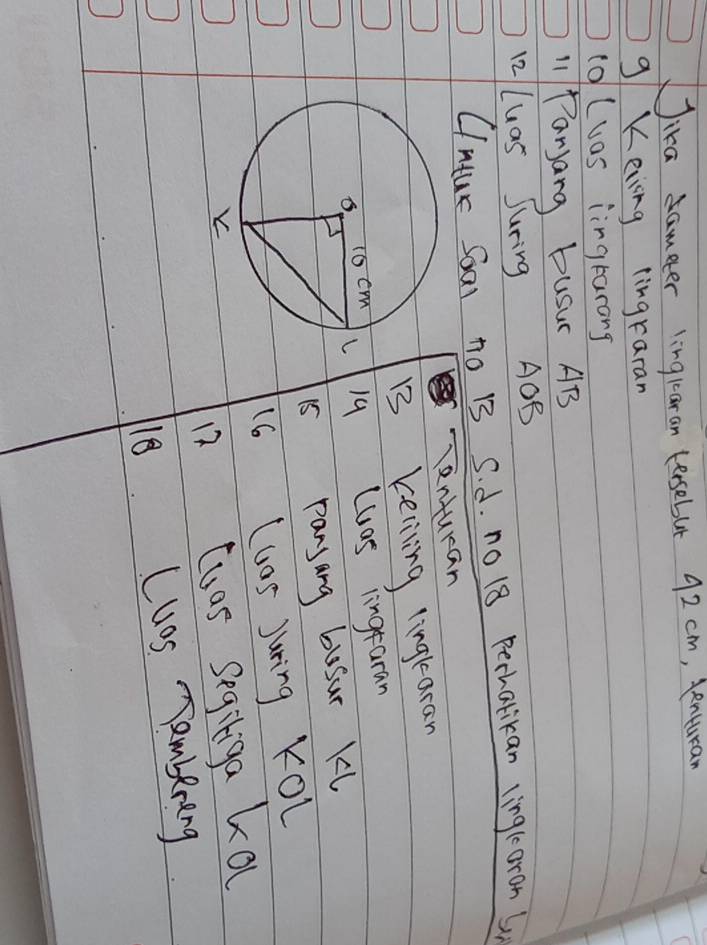 Jika diameter lingkaran tersebut 42 cm, tentukan
9 Keliling lingkaran
10 Luas lingkarang
11 Panjang busur AB
12 Luas Juring AOB
Untuk Soal no 13 s.d. no 18 perhatikan lingkaran
O
10 cm
K
L
Tentukan
13 keliling lingkaran
14 Luas lingkaran
15 panjang busur KL
16 Luas Juring KOL
17 Luas Segitiga KOL
18 Luas Tembereng